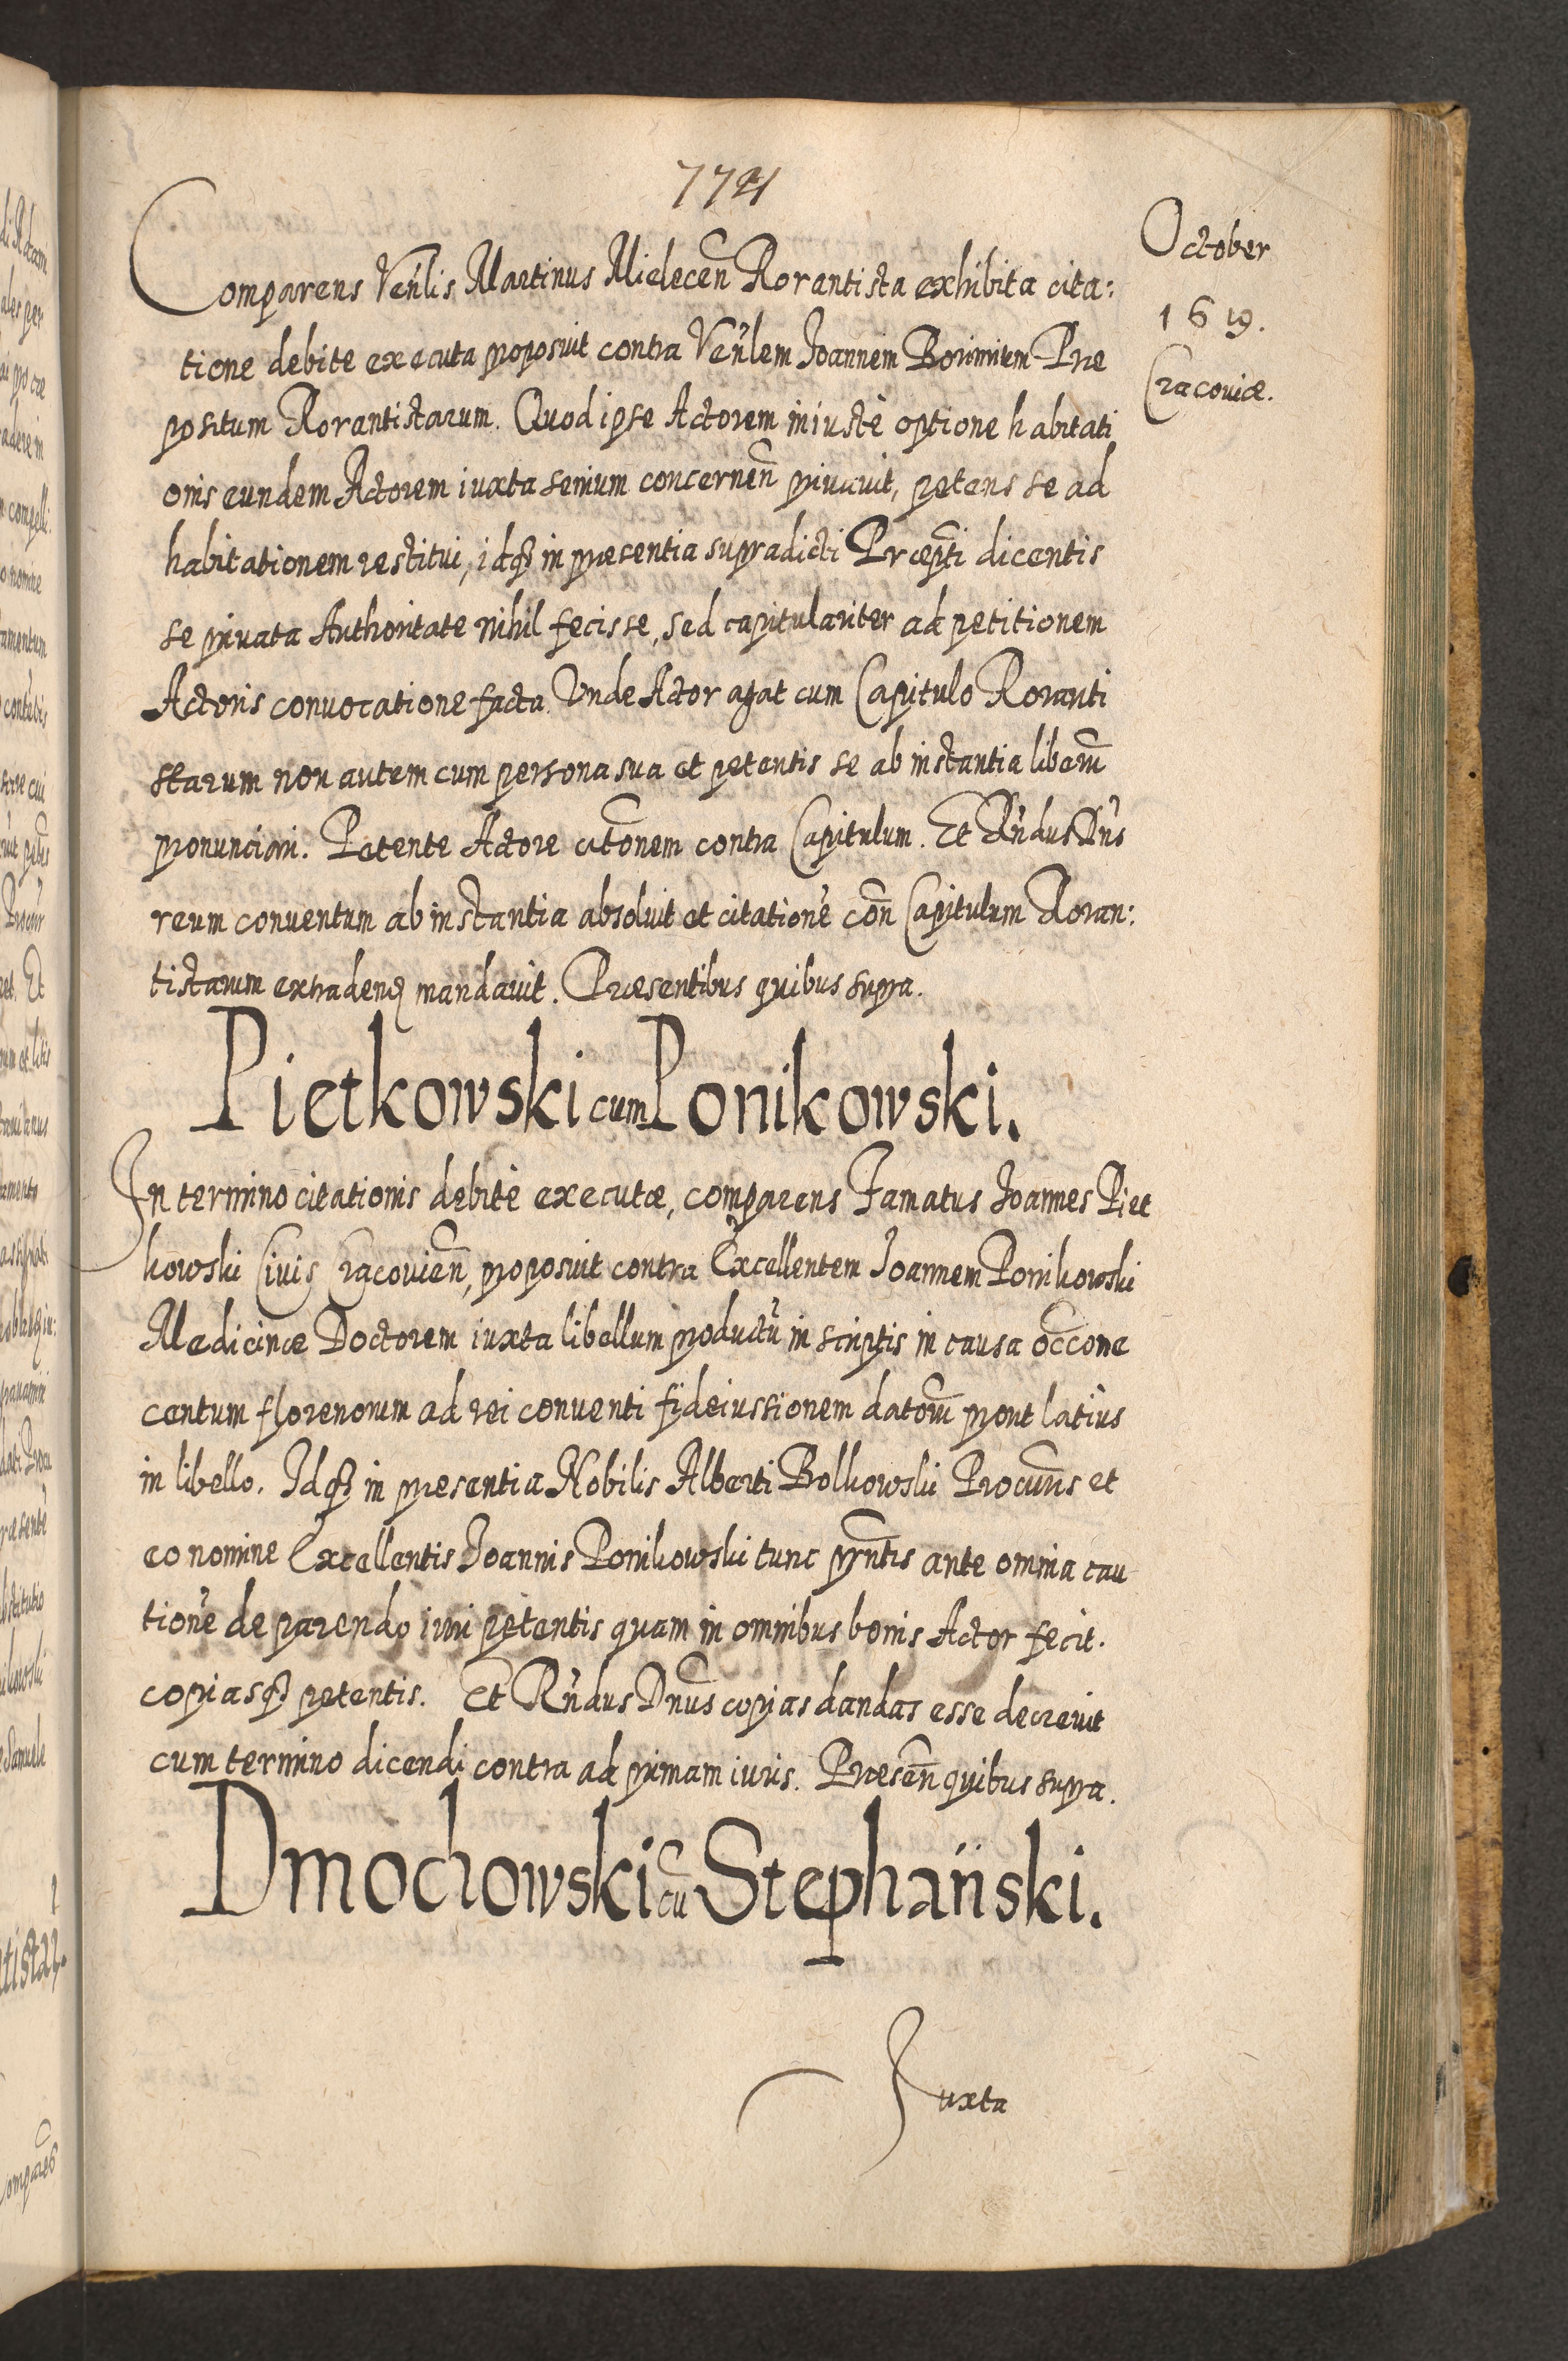 October
1619.
Cracoviæ.
Comparens Venlis Martinus Mielecen Rorantista exhibita cita:
tione debite executa proposuit contra Venlem Joannem Borimium Præ
positum Rorantistarum. Quod ipse Actorem iniustè optione habitati
onis eundem Actorem iuxta senium concernen privavit, petens se ad
habitationem restitui, idq3 in præsentia supradicti Præpti dicentis
se privata Authoritate nihil fecisse, sed capitulariter ad petitionem
Actoris convocatione facta. Unde Actor agat cum Capitulo Roranti
starum non autem cum persona sua et petentis se ab instantia liberum
pronunciari. Petente Actore citonem contra Capitulum. Et Rndus Dns
reum conventum ab instantia absolvit et citatione con Capitulum Roran:
tistarum extraden mandavit. Præsentibus quibus supra.
Pietkowski cum Ponikowski.
In termino citationis debitè executæ, comparens Famatus Joannes Piet
kowski Civis Cracovien, proposuit contra Excellentem Joannem Ponikowski
Medicinæ Doctorem iuxta libellum productu in scriptis in causa occone
centum florenorum ad rei conventi fideiussionem datorum prout latius
in libello. Idq3 in præsentia Nobilis Alberti Bolkowski Procuris et
eo nomine Excellentis Joannis Ponikowski tunc pntis ante omnia cau
tione de parendo iuri petentis quam in omnibus bonis Actor fecit.
copiasq3 petentis. Et Rndus Dnus copias dandas esse decrevit
cum termino dicendi contra ad primam iuris. Præsen quibus supra.
Dmochowski cu Stephański.
Juxta